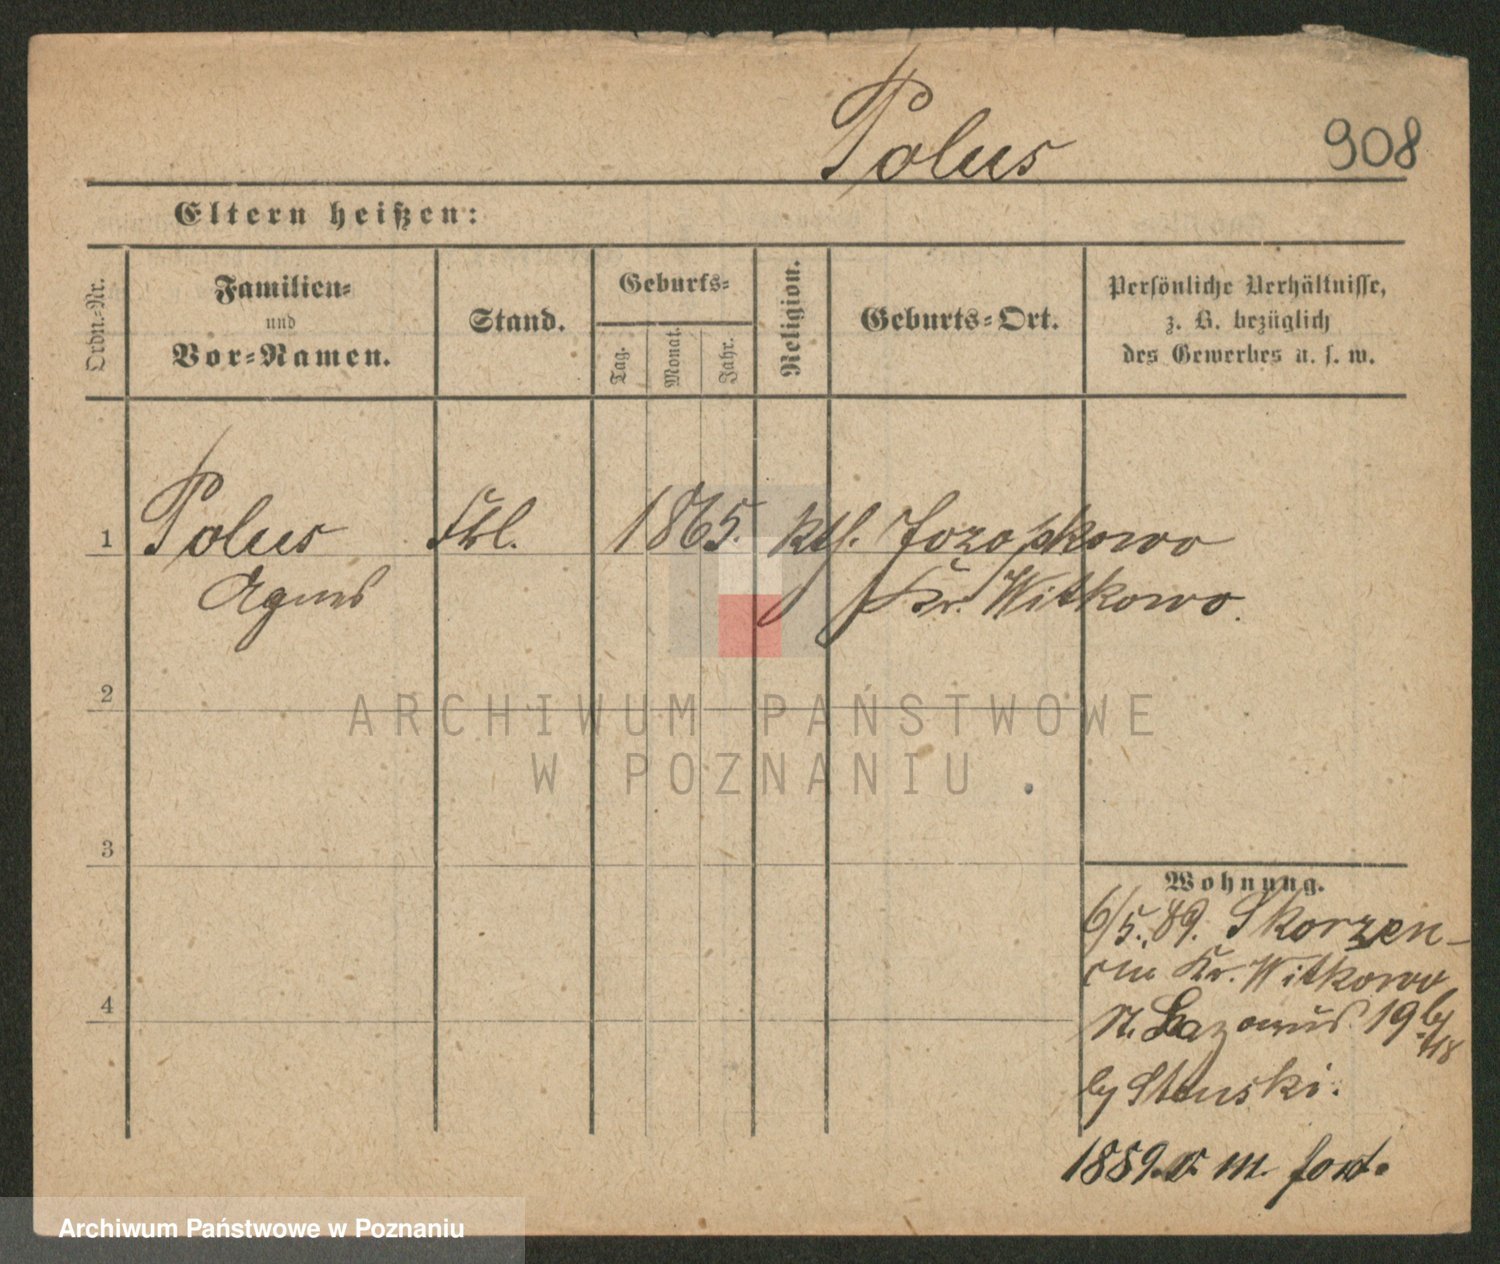 Polus
908
Eltern heißen:
Ordn.-Nr.
Familien-
und
Vor-Namen.
Stand.
Geburts-
Tag.
Monat.
Jahr.
Religion.
Geburts-Ort.
Persönliche Verhältnisse,
z. B. bezüglich
des Gewerbes u. s. w.
1
Polus
Agnes
1865.
kth.
Kr. Witkowo.
2
ARCHIWUM PAŃSTWOWE
W POZNANIU
3
Wohnung.
6/5. 89. Skorzen-
cin Kr. Witkowo
4
St. Lazarus 19
1889. fort.
Archiwum Państwowe w Poznaniu